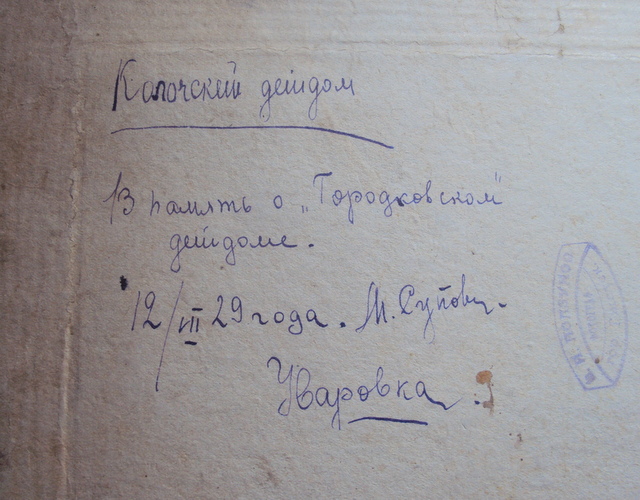 Колочский дейдом
В память о „Городковском"
дейдоме.
12/VII 29 года. М. Супов
Уваровка.